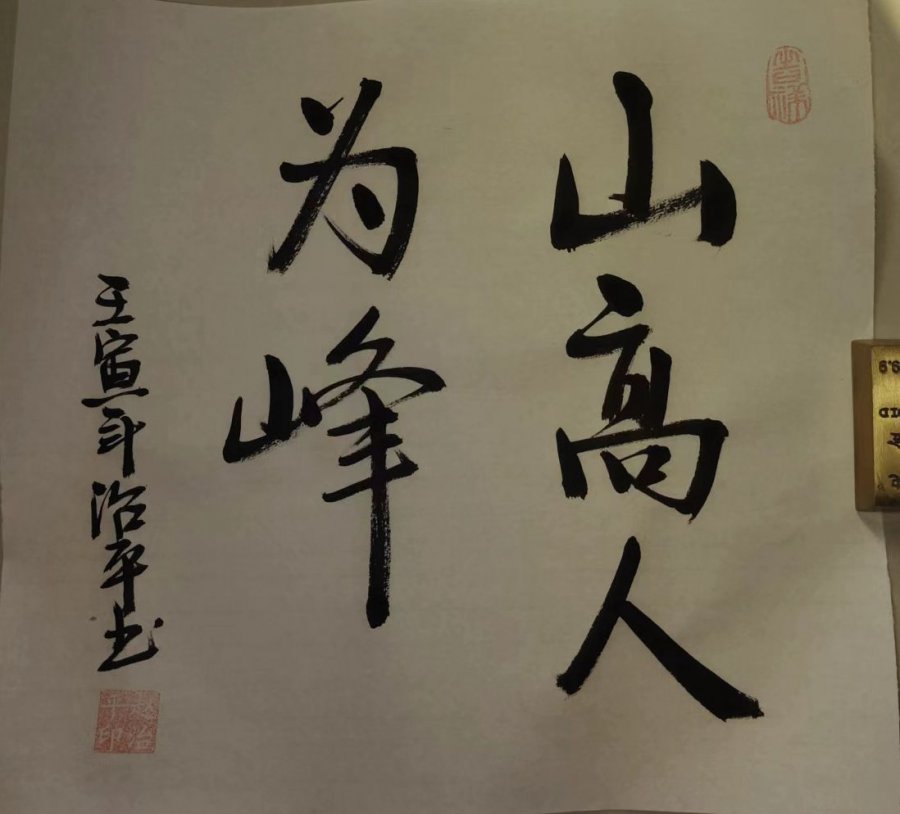 山高人
为峰
壬寅年治平书